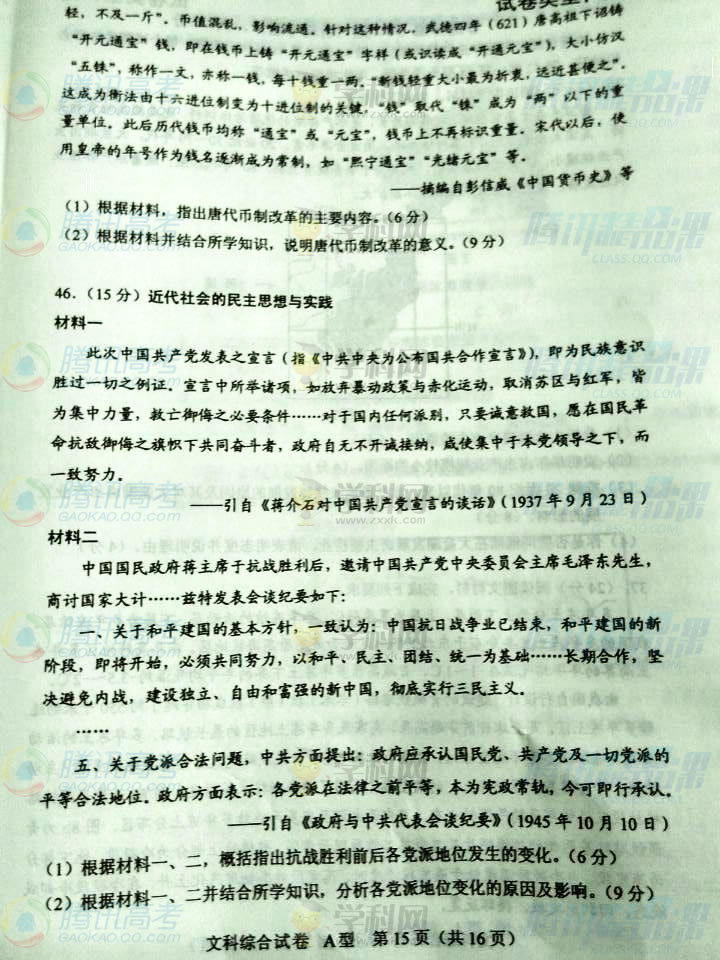 试卷类型：
轻，不及一斤”。币值混乱，影响流通。针对这种情况，武德四年（621）唐高祖下诏铸
“开元通宝”钱，即在钱币上铸“开元通宝”字样（或识读成“开通元宝”），大小仿汉
“五铢”，称作一文，亦称一钱，每十钱重一两。“新钱轻重大小最为折衷，远近甚便之”。
这成为衡法由十六进位制变为十进位制的关键，“钱”取代“铢”成为“两”以下的重
量单位。此后历代钱币均称“通宝”或“元宝”，钱币上不再标识重量。宋代以后，使
用皇帝的年号作为钱名逐渐成为常制，如“熙宁通宝”“光绪元宝”等。
——摘编自彭信威《中国货币史》等
（1）根据材料，指出唐代币制改革的主要内容。（6 分）
（2）根据材料并结合所学知识，说明唐代币制改革的意义。（9 分）
46．（15 分）近代社会的民主思想与实践
材料一
此次中国共产党发表之宣言（指《中共中央为公布国共合作宣言》），即为民族意识
胜过一切之例证。宣言中所举诸项，如放弃暴动政策与赤化运动，取消苏区与红军，皆
为集中力量，救亡御侮之必要条件……对于国内任何派别，只要诚意救国，愿在国民革
命抗敌御侮之旗帜下共同奋斗者，政府自无不开诚接纳，咸使集中于本党领导之下，而
一致努力。
——引自《蒋介石对中国共产党宣言的谈话》（1937 年 9 月 23 日）
材料二
中国国民政府蒋主席于抗战胜利后，邀请中国共产党中央委员会主席毛泽东先生，
商讨国家大计……兹特发表会谈纪要如下：
一、关于和平建国的基本方针，一致认为：中国抗日战争业已结束，和平建国的新
阶段，即将开始，必须共同努力，以和平、民主、团结、统一为基础……长期合作，坚
决避免内战，建设独立、自由和富强的新中国，彻底实行三民主义。
……
五、关于党派合法问题，中共方面提出：政府应承认国民党、共产党及一切党派的
平等合法地位。政府方面表示：各党派在法律之前平等，本为宪政常轨，今可即行承认。
——引自《政府与中共代表会谈纪要》（1945 年 10 月 10 日）
（1）根据材料一、二，概括指出抗战胜利前后各党派地位发生的变化。（6 分）
（2）根据材料一、二并结合所学知识，分析各党派地位变化的原因及影响。（9 分）
文科综合试卷 A型 第 15 页（共 16 页）
腾讯高考
GAOKAO.QQ.COM
腾讯精品课
CLASS.QQ.COM
学科网
www.zxxk.com